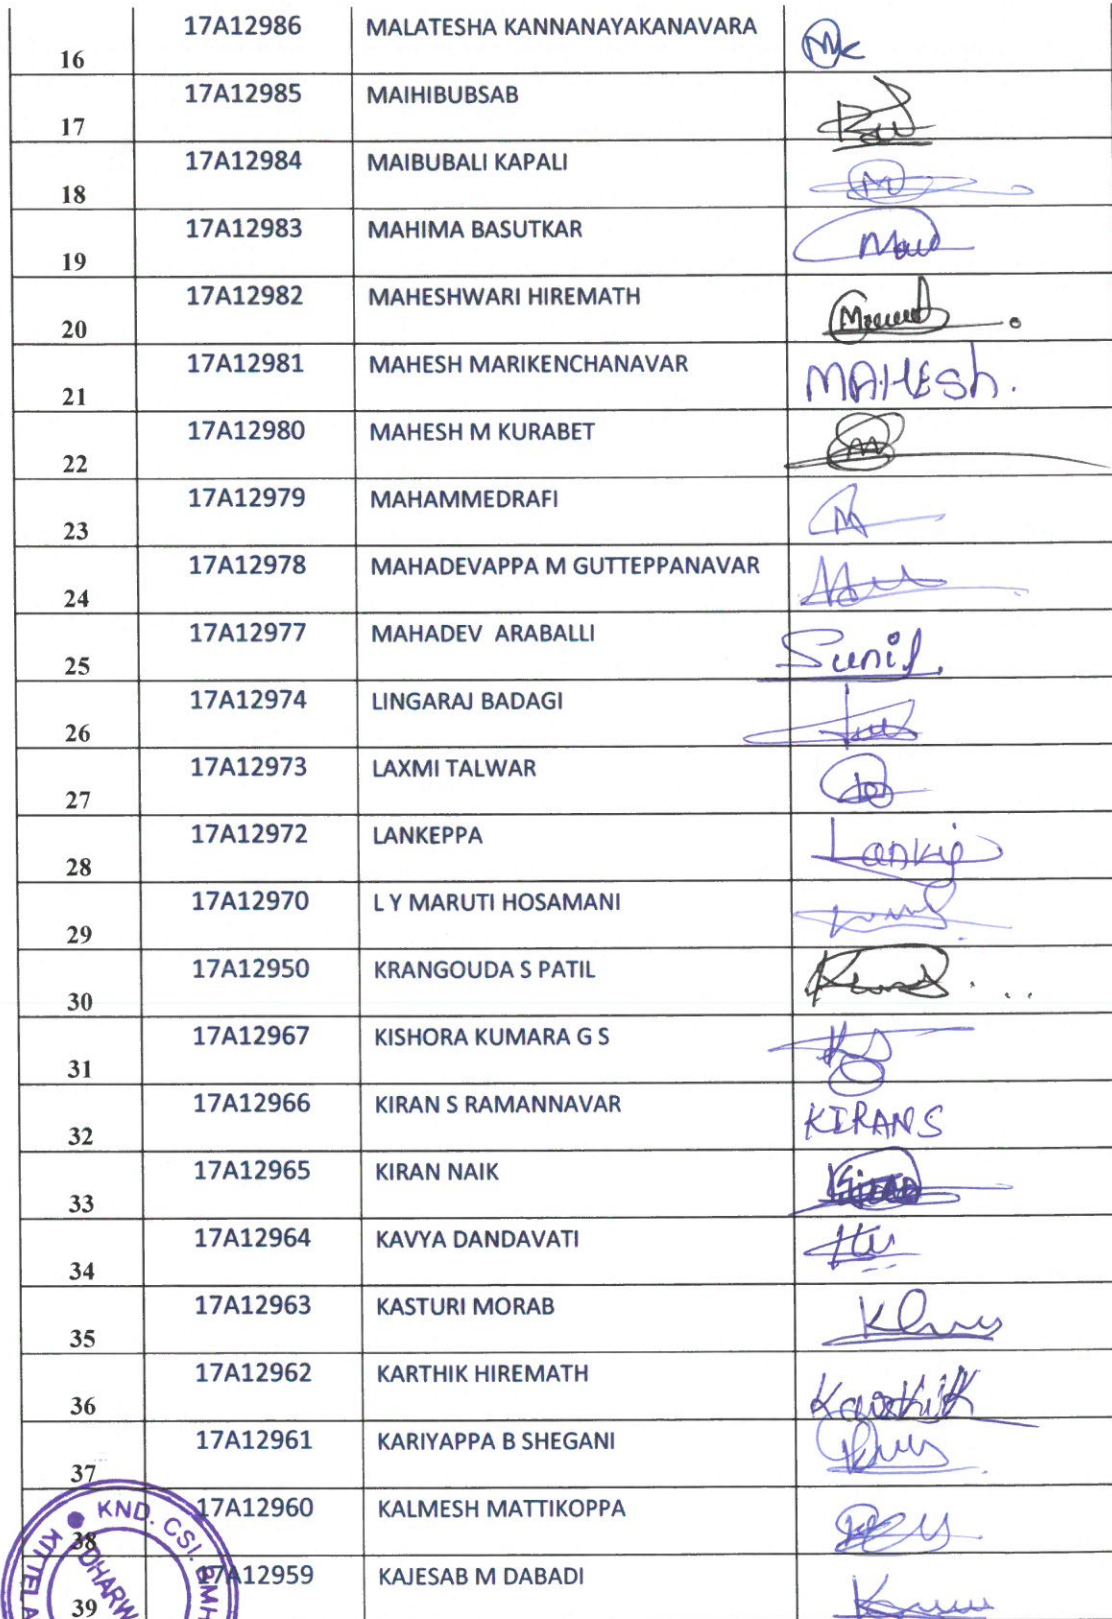 16 17A12986 MALATESHA KANNANAYAKANAVARA MK
17 17A12985 MAIHIBUBSAB
18 17A12984 MAIBUBALI KAPALI M
19 17A12983 MAHIMA BASUTKAR
20 17A12982 MAHESHWARI HIREMATH
21 17A12981 MAHESH MARIKENCHANAVAR MAHESh.
22 17A12980 MAHESH M KURABET M
23 17A12979 MAHAMMEDRAFI M
24 17A12978 MAHADEVAPPA M GUTTEPPANAVAR
25 17A12977 MAHADEV ARABALLI Sunil.
26 17A12974 LINGARAJ BADAGI
27 17A12973 LAXMI TALWAR
28 17A12972 LANKEPPA
29 17A12970 L Y MARUTI HOSAMANI
30 17A12950 KRANGOUDA S PATIL
31 17A12967 KISHORA KUMARA G S
32 17A12966 KIRAN S RAMANNAVAR KIRAN S
33 17A12965 KIRAN NAIK Kiran
34 17A12964 KAVYA DANDAVATI
35 17A12963 KASTURI MORAB
36 17A12962 KARTHIK HIREMATH Karthik
37 17A12961 KARIYAPPA B SHEGANI
38 17A12960 KALMESH MATTIKOPPA
39 17A12959 KAJESAB M DABADI
KND. CSI.